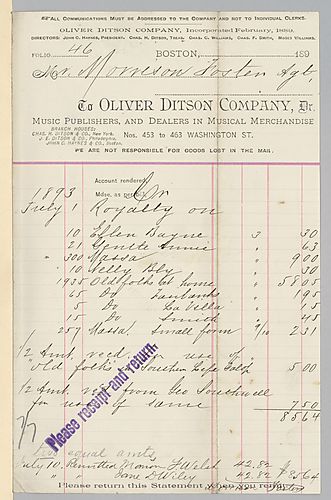 All Communications Must be Addressed to the Company and not to Individual Clerks.
OLIVER DITSON COMPANY, Incorporated February, 1889.
DIRECTORS: JOHN C. HAYNES, PRESIDENT. CHAS. H. DITSON, TREAS. CHAS. C. WILLIAMS, CHAS. F. SMITH, MOSES WILLIAMS.
FOLIO 46 BOSTON, 189
Mr. Morrison Foster Agt.
To OLIVER DITSON COMPANY, Dr.
MUSIC PUBLISHERS, AND DEALERS IN MUSICAL MERCHANDISE
BRANCH HOUSES:
CHAS. H. DITSON & CO., New York.
J. E. DITSON & CO., Philadelphia.
JOHN C. HAYNES & CO., Boston.
Nos. 453 to 463 WASHINGTON ST.
WE ARE NOT RESPONSIBLE FOR GOODS LOST IN THE MAIL.
Account rendered,
1893 Mdse. as per Cr
July 1 Royalty on
10 Ellen Bayne 3 30
21 Gentle Annie 3 63
300 Massa 3 9 00
10 Nelly Bly 3 30
1935 Old folks at home 3 58 05
65 Do Fantania 3 1 95
5 Do La Villa 3 15
15 Do Smith 3 45
257 Massa. Small form 3/10 2 31
1/2 Amt. recd. for use of
"Old folks" in Southern Life 5 00
1/2 Amt. recd from Geo Southwell
for use of same 7 50
85 64
Please receipt and return.
equal amts,
July 10, Remitted Marion F Welch 42.82
" " Jane D Wiley 42.82 $85.64
Please return this Statement when you remit.